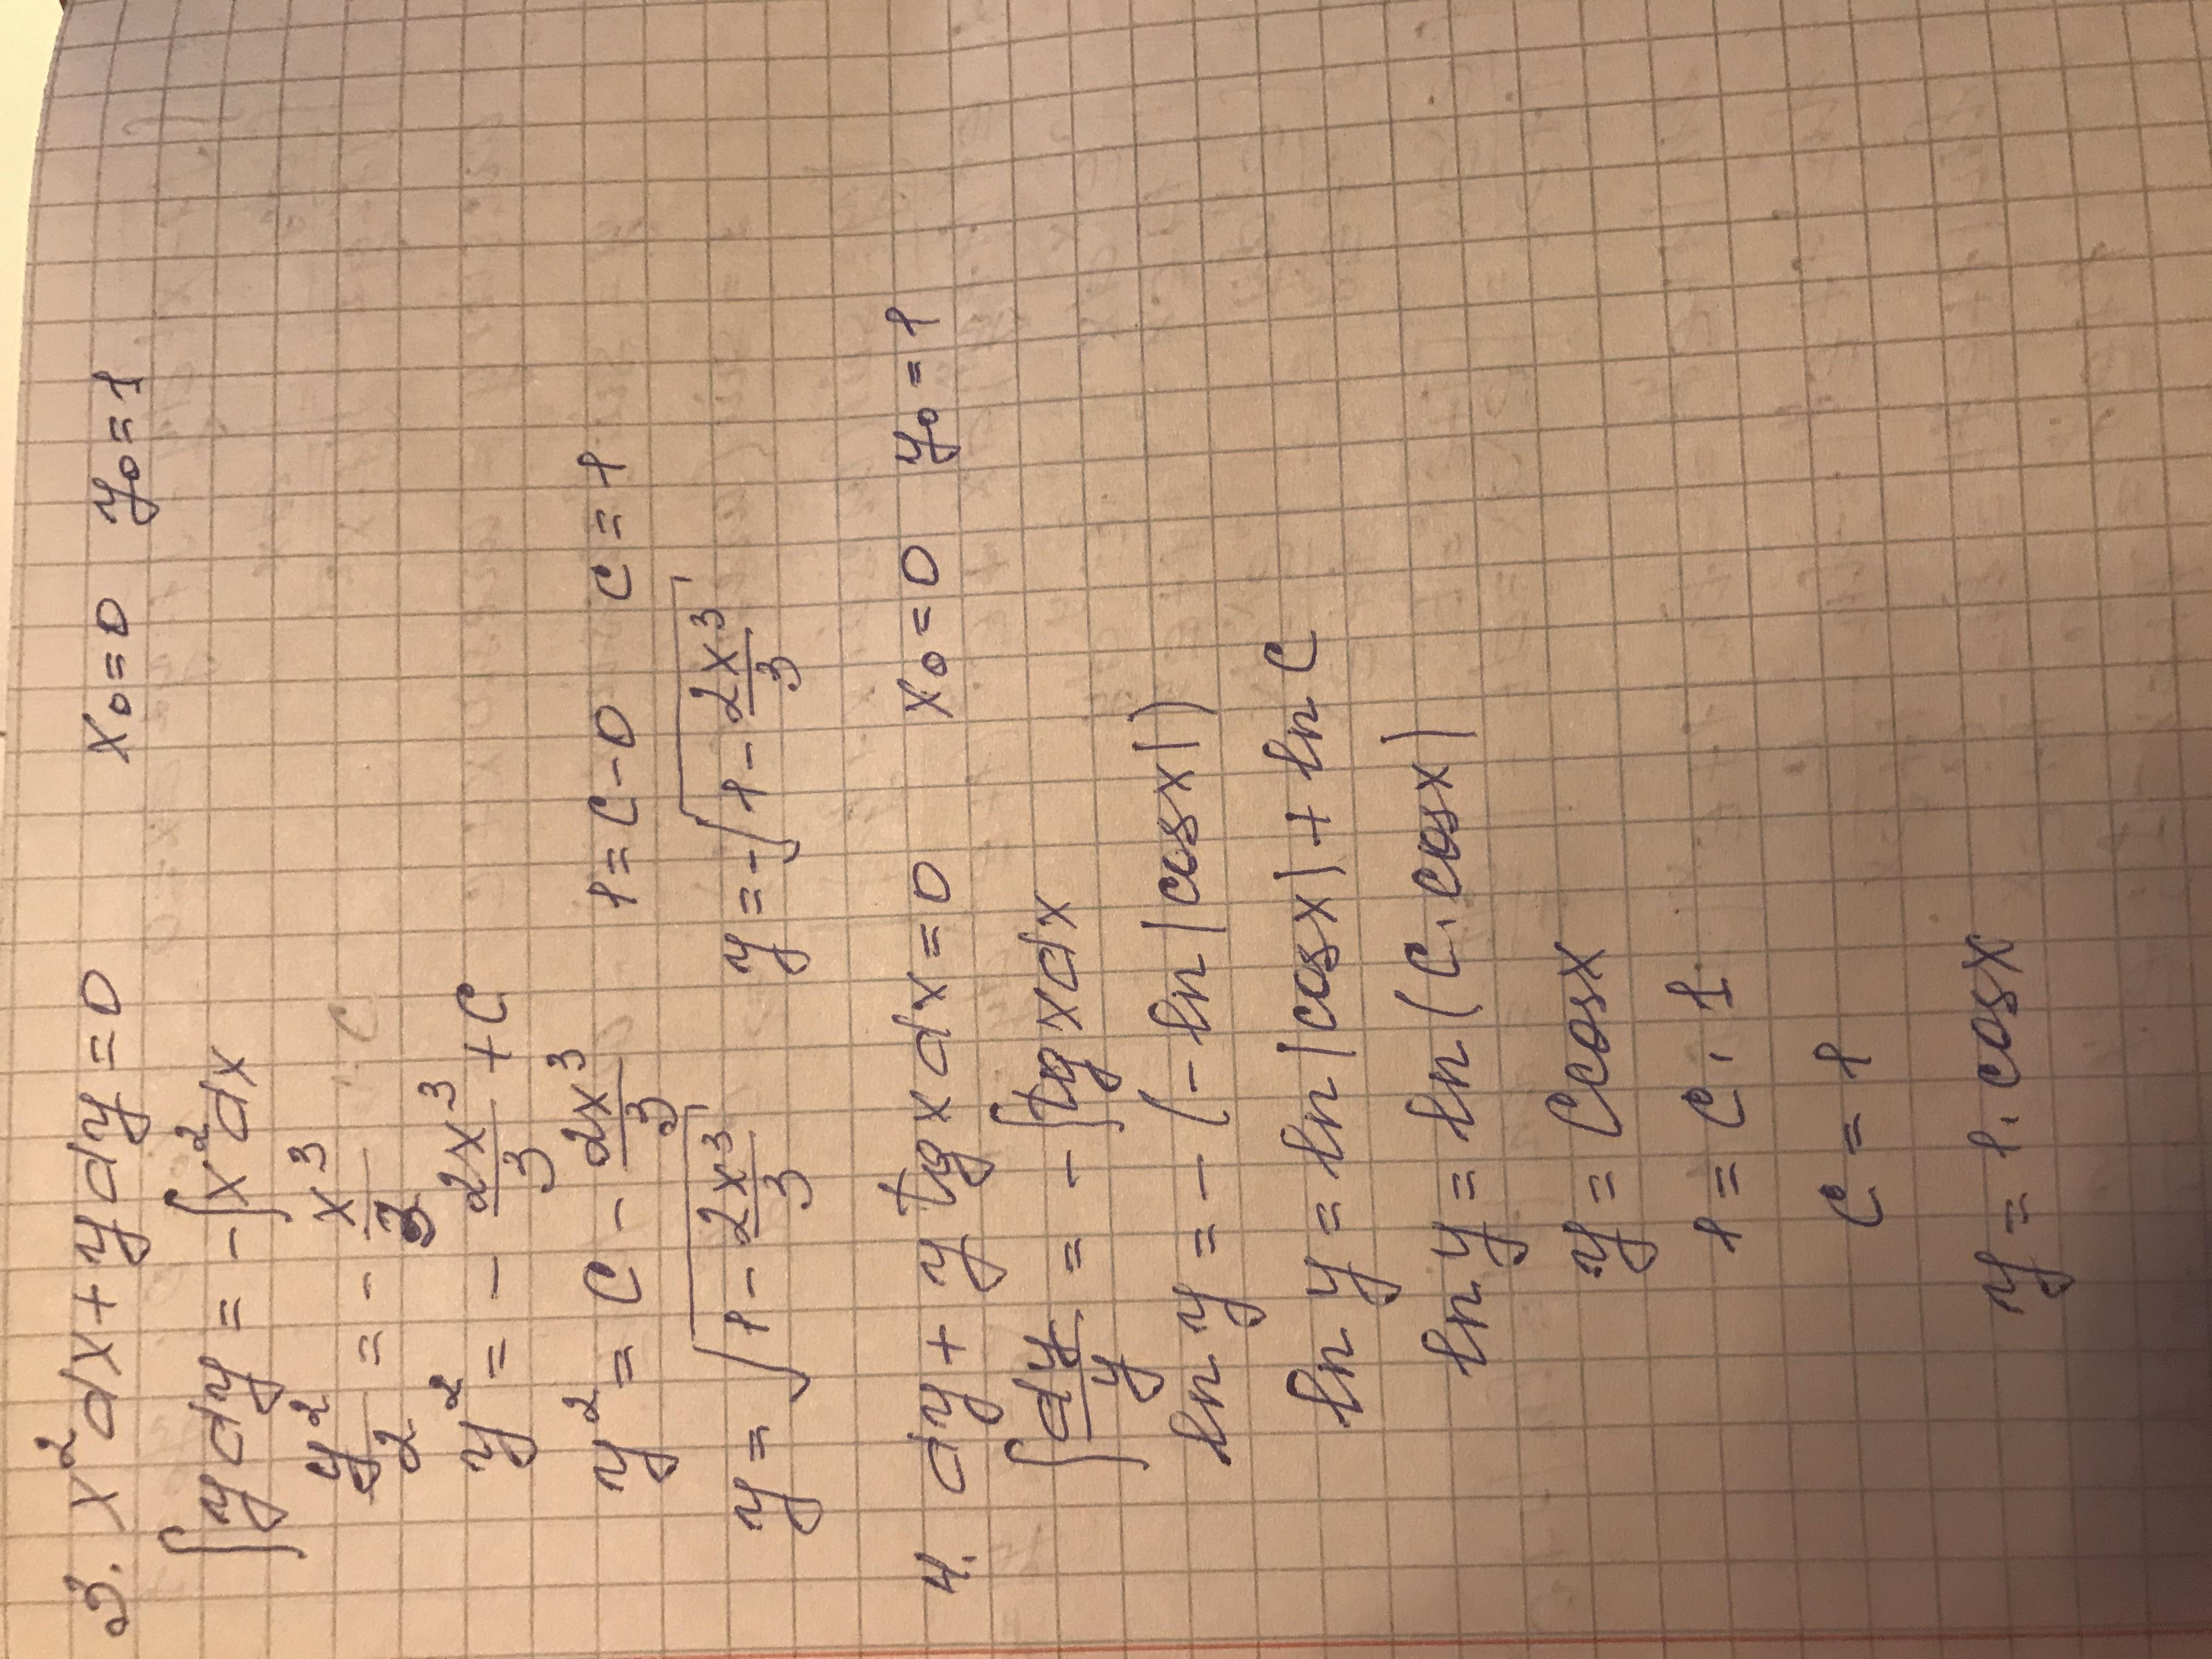 3. x²dx + ydy = 0 x₀ = 0 y₀ = 1
∫ydy = -∫x²dx
y²/2 = - x³/3
y² = - 2x³/3 + C
y² = C - 2x³/3 1 = C - 0 C = 1
y = √(1 - 2x³/3) y = -√(1 - 2x³/3)
4. dy + y tgx dx = 0 x₀ = 0 y₀ = 1
∫dy/y = - ∫tgxdx
ln y = - (-ln|cosx|)
ln y = ln|cosx| + ln C
ln y = ln(C · cosx)
y = C cosx
1 = C · 1
C = 1
y = 1 · cosx